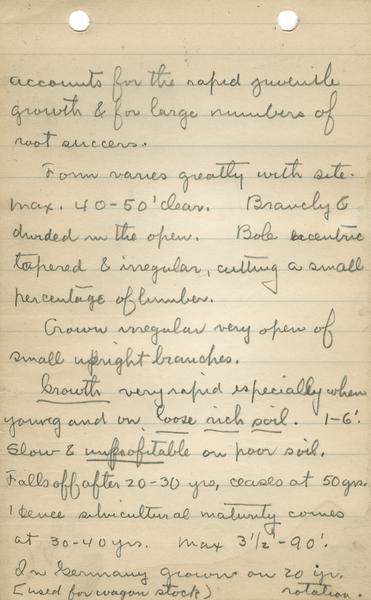 accounts for the rapid juvenile
growth & for large numbers of
root suckers.
Form varies greatly with site.
Max. 40-50' clear. Branchy &
divided in the open. Bole eccentric
tapered & irregular, cutting a small
percentage of lumber.
Crown irregular very open of
small upright branches.
Growth very rapid especially when
young and on loose rich soil. 1-6'.
Slow & unprofitable on poor soil.
Falls off after 20-30 yrs, ceases at 50 yrs.
Hence silvicultural maturity comes
at 30-40 yrs. Max 3 1/2'-90'.
In Germany grown on 20 yr.
(used for wagon stock) rotation.